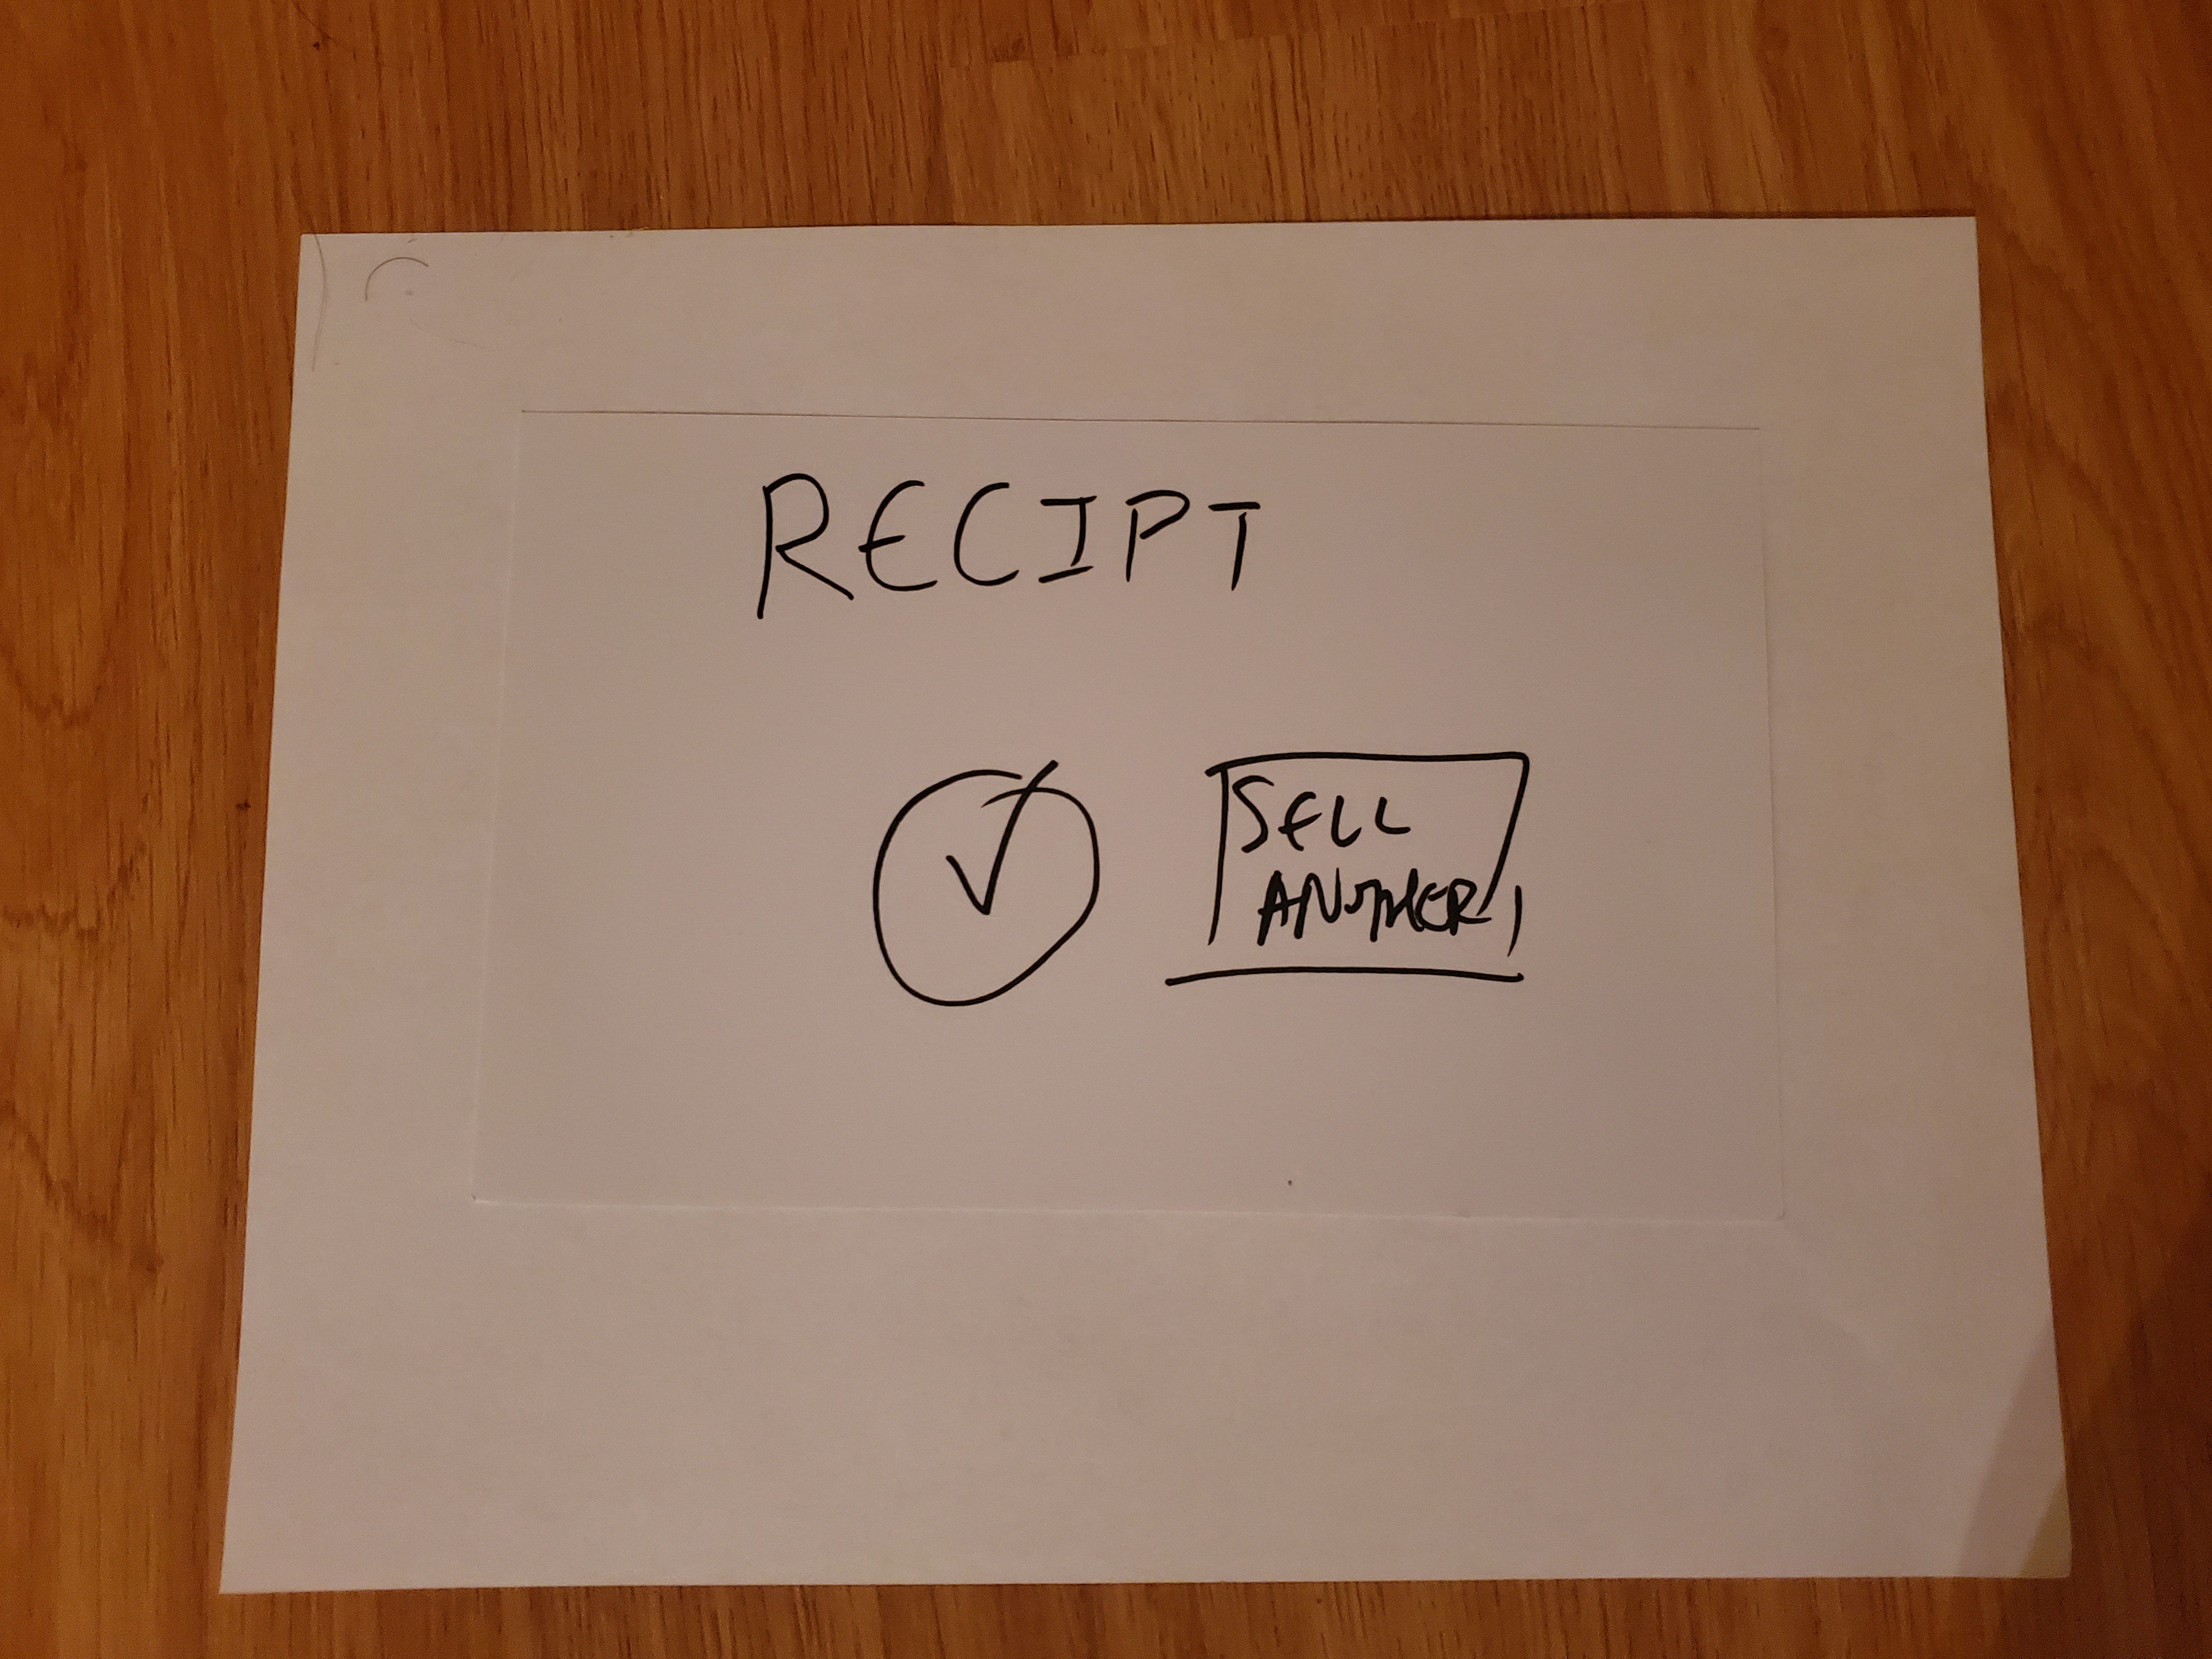 RECIPT
SELL
ANOTHER